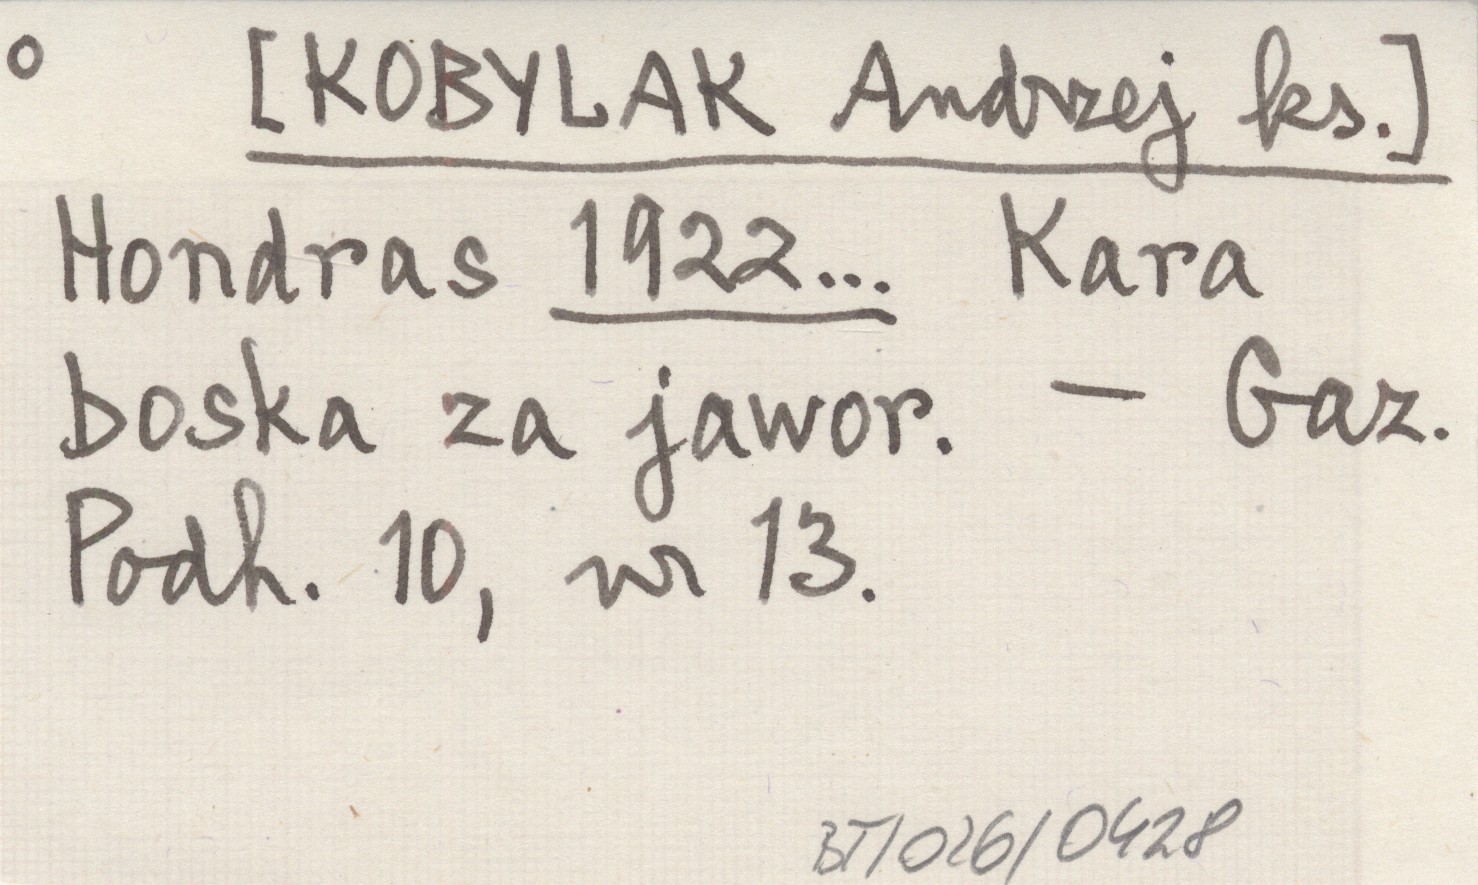 [KOBYLAK Andrzej ks.]
Hondras 1922... Kara
boska za jawor. – Gaz.
Podh. 10, nr 13.
BT/026/0428